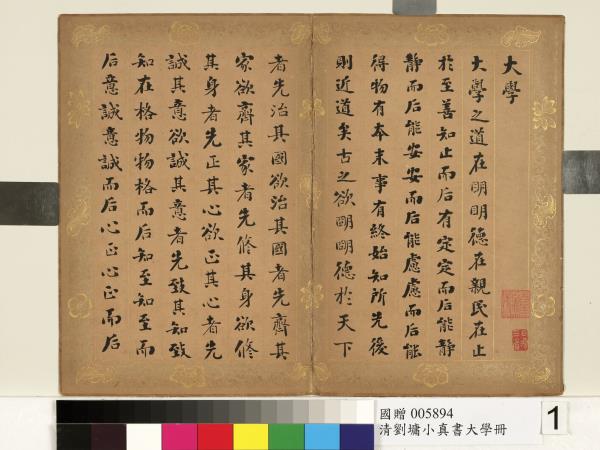 大學
大學之道在明明德在親民在止
於至善知止而后有定定而后能靜
靜而后能安安而后能慮慮而后能
得物有本末事有終始知所先後
則近道矣古之欲明明德於天下
者先治其國欲治其國者先齊其
家欲齊其家者先修其身欲修
其身者先正其心欲正其心者先
誠其意欲誠其意者先致其知致
知在格物物格而后知至知至而
后意誠意誠而后心正心正而后
國贈 005894
清劉墉小真書大學冊
1